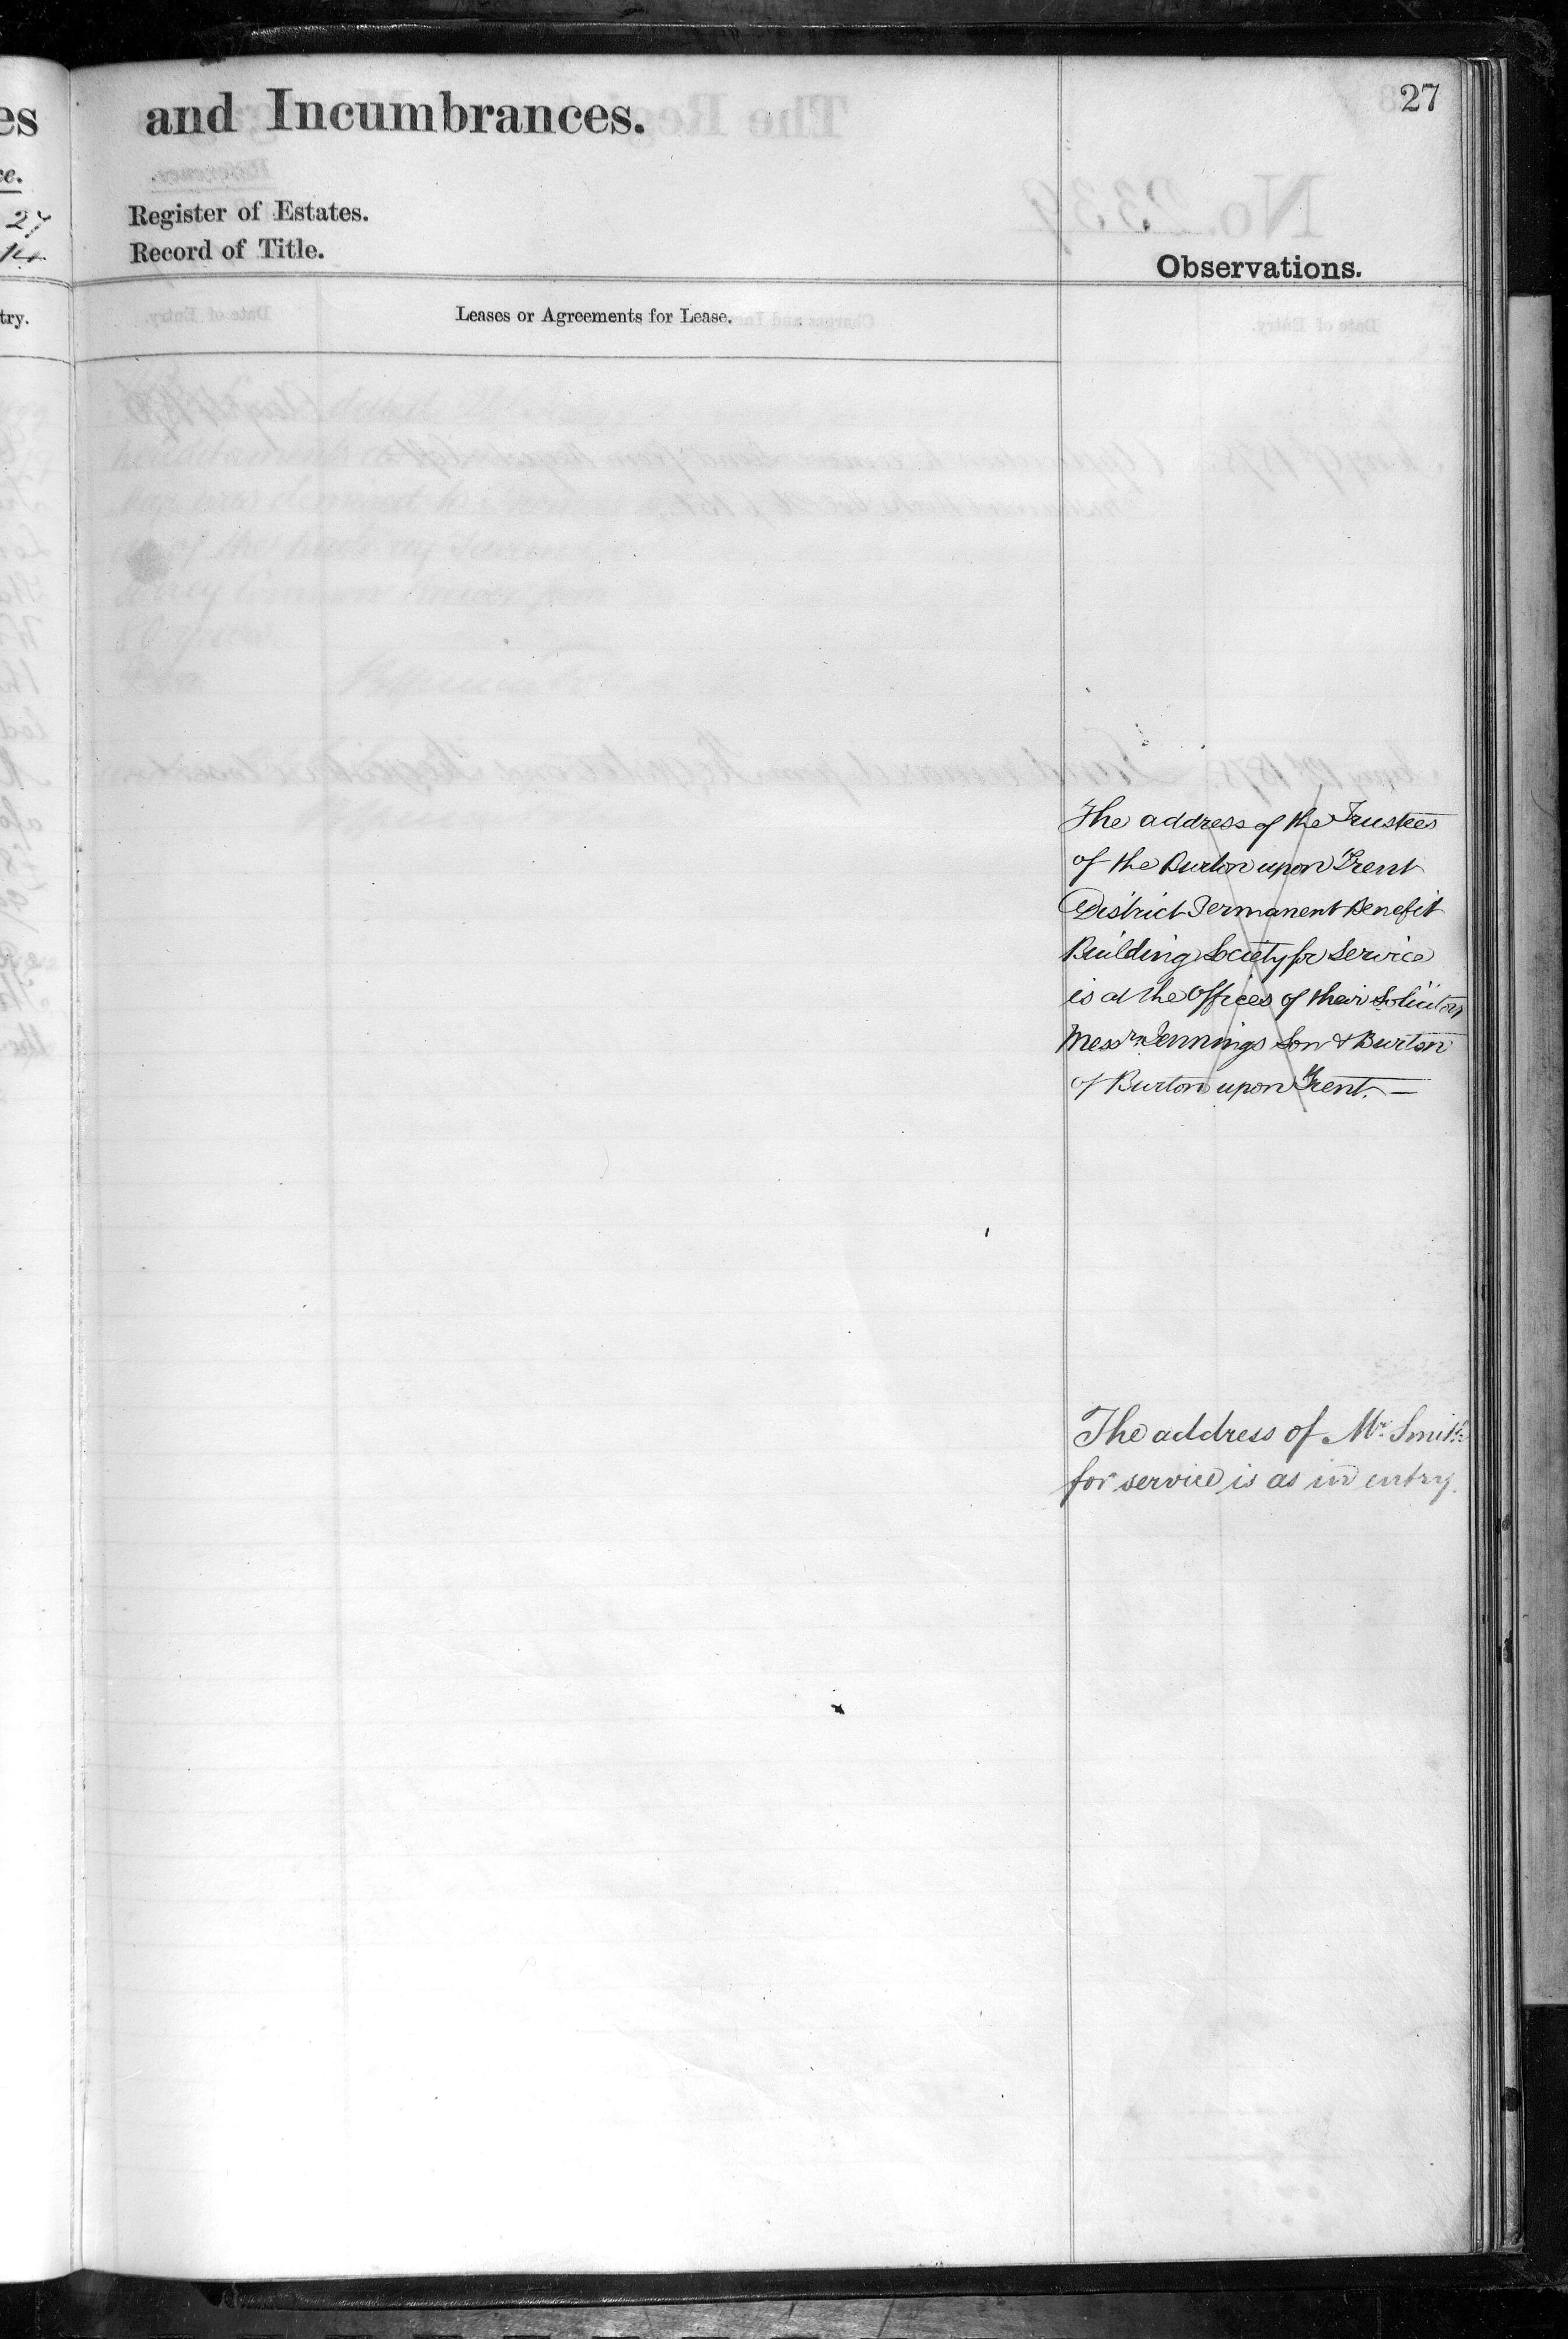 27
and Incumbrances.
Register of Estates.
Record of Title.
Observations.
Leases or Agreements for Lease.
The address of the Trustees
of the Burton upon Trent
District Permanent Benefit
Building Society for Service
is at the Offices of their Solicitors
Messrs Jennings Son & Burton
of Burton upon Trent. —
The address of Mr. Smith
for service is as in entry.